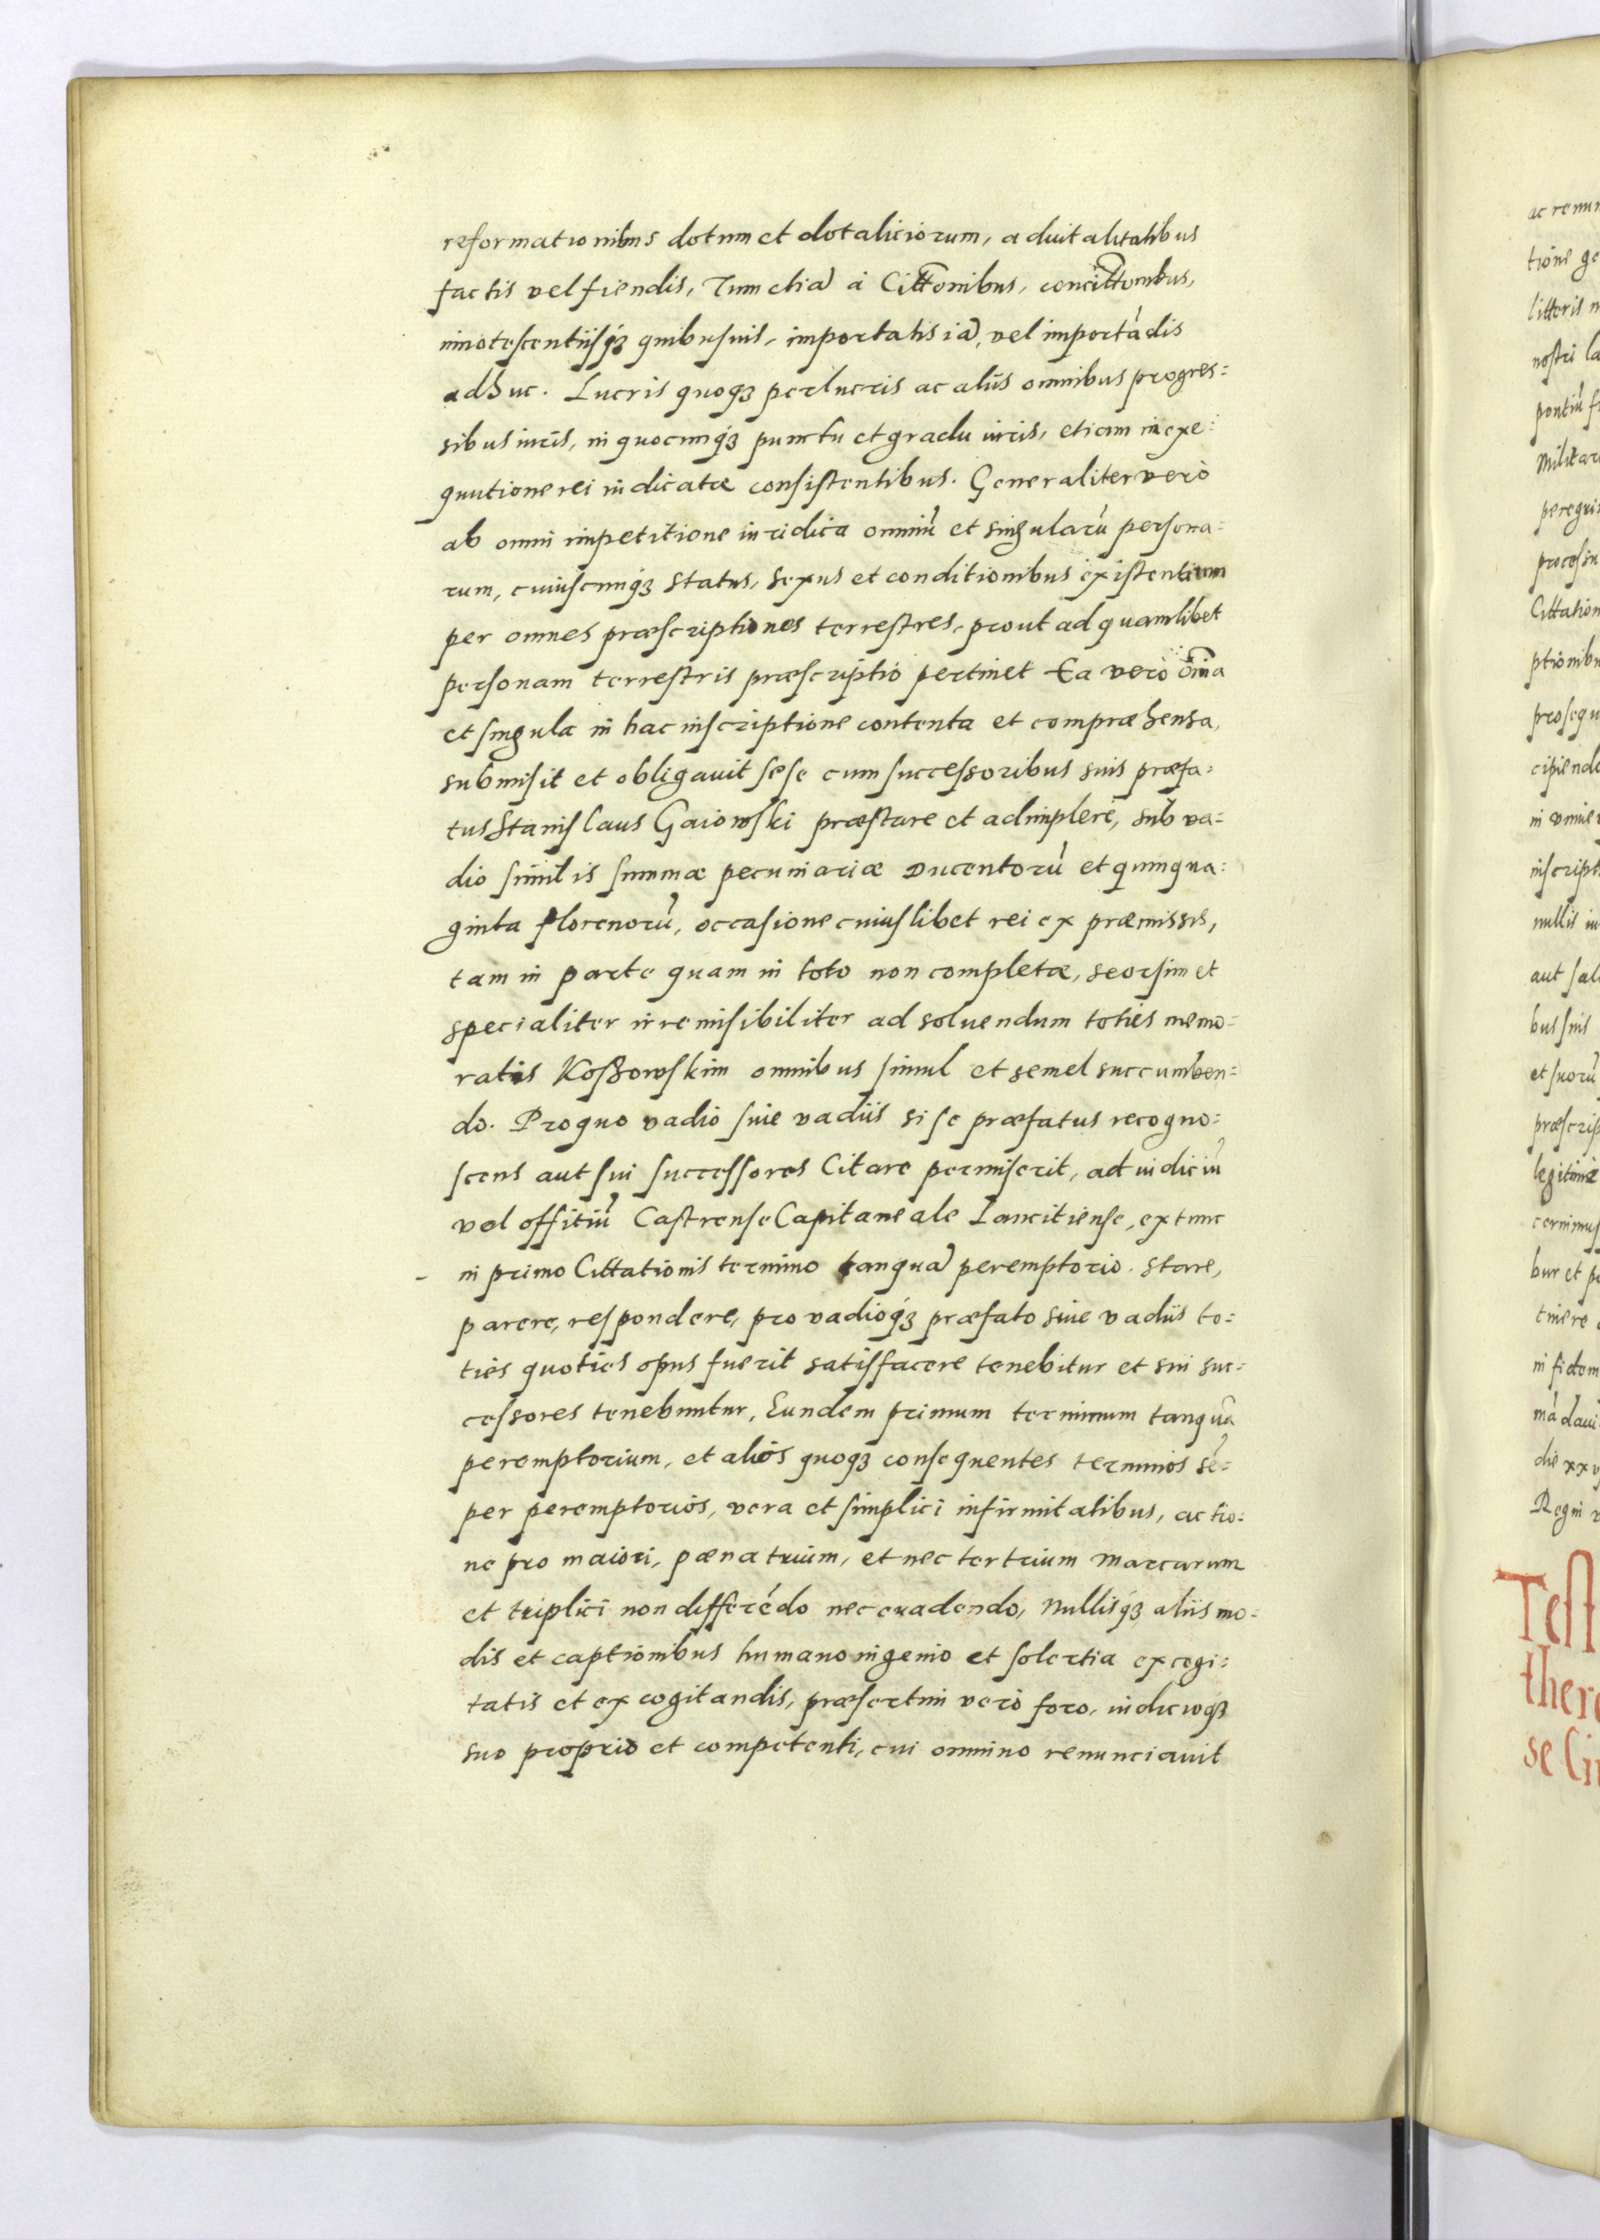 reformationibus dotum et dotaliciorum, aduitalitatibus
factis vel fiendis, Tum etiā à Citt̃onibus, concitt̃onibus,
innotescentiisq́ꝫ quibusuis, importatis iā, vel importādis
adhuc. Lucris quoqꝫ perlucris ac aliis omnibus progres=
sibus iuris, in quocunq́ꝫ punctu et gradu iuris, etiam in exe=
quutione rei iudicatæ consistentibus. Generaliter verò
ab omni impetitione iuridica omniū et singularū persona=
rum, cuiuscunq́ꝫ status, sexus et conditionibus existentium
per omnes præscriptiones terrestres, prout ad quamlibet
personam terrestris præscriptio pertinet Ea verò om̃ia
et singula in hac inscriptione contenta et compræhensa,
submisit et obligauit sese cum successoribus suis præfa=
tus Stanislaus Gaiowski præstare et adimplere, sub va=
dio similis summæ pecuniariæ ducentorū et quinqua=
ginta florenorū, occasione cuiuslibet rei ex præmissis,
tam in parte quam in toto non completæ, seorsim et
specialiter irremisibiliter ad soluendum toties memo=
ratis Koßowskim omnibus simul et semel succumben=
do. Pro quo vadio siue vadiis si se præfatus recogno=
scens aut sui successores Citare permiserit, ad iudiciū
vel offitiū Castrense Capitaneale Lancitiense, extunc
in primo Cittationis termino tanquā peremptorio. stare,
parere, respondere, pro vadioq́ꝫ præfato siue vadiis to=
ties quoties opus fuerit satisfacere tenebitur et sui suc=
cessores tenebuntur, Eundem primum terminum tanquā
peremptorium, et alios quoqꝫ consequentes terminos sē=
per peremptorios, vera et simplici infirmitatibus, actio=
ne pro maiori, pæna trium, et nec ter trium marcarum
et triplici non differēdo nec euadendo, Nullisq́ꝫ aliis mo=
dis et captionibus humano ingenio et solertia excogi=
tatis et excogitandis, præsertim verò foro, iudicioqꝫ
suo proprio et competenti, cui omnino renunciauit